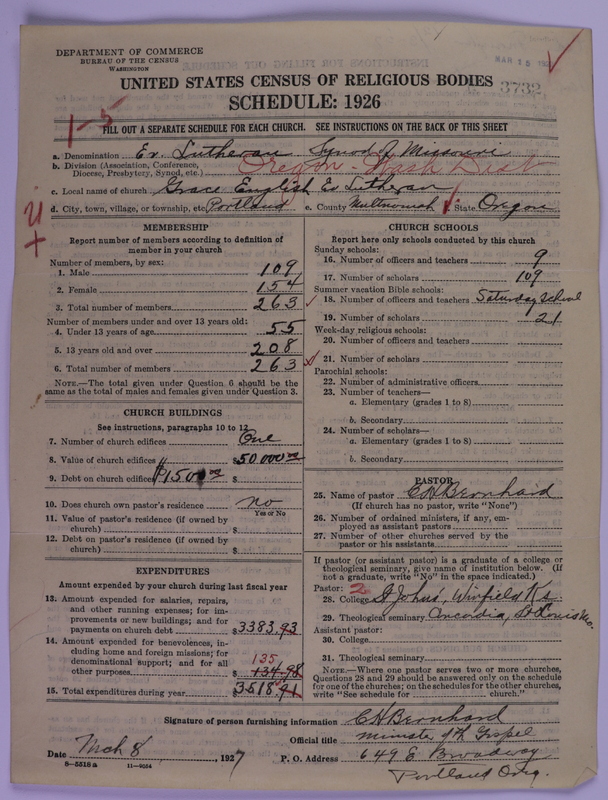 DEPARTMENT OF COMMERCE
BUREAU OF THE CENSUS
WASHINGTON
MAR 15 192
3732
UNITED STATES CENSUS OF RELIGIOUS BODIES
SCHEDULE: 1926
1-5
FILL OUT A SEPARATE SCHEDULE FOR EACH CHURCH. SEE INSTRUCTIONS ON THE BACK OF THIS SHEET
a. Denomination Ev. Lutheran Synod of Missouri
b. Division (Association, Conference, Diocese, Presbytery, Synod, etc.) Oregon - Wash Dist
c. Local name of church Grace English Ev Lutheran
d. City, town, village, or township, etc. Portland e. County Multnomah State Oregon
MEMBERSHIP
Report number of members according to definition of
member in your church
Number of members, by sex:
1. Male 109
2. Female 154
3. Total number of members 263
Number of members under and over 13 years old:
4. Under 13 years of age 55
5. 13 years old and over 208
6. Total number of members 263
NOTE.—The total given under Question 6 should be the
same as the total of males and females given under Question 3.
CHURCH BUILDINGS
See instructions, paragraphs 10 to 12
7. Number of church edifices One
8. Value of church edifices $50,000.00
9. Debt on church edifices $1500.00 $
10. Does church own pastor's residence no
Yes or No
11. Value of pastor's residence (if owned by
church) $
12. Debt on pastor's residence (if owned by
church) $
EXPENDITURES
Amount expended by your church during last fiscal year
13. Amount expended for salaries, repairs,
and other running expenses; for im-
provements or new buildings; and for
payments on church debt $3383.93
14. Amount expended for benevolences, in-
cluding home and foreign missions; for
denominational support; and for all
135
other purposes $134.98
15. Total expenditures during year $3518.91
CHURCH SCHOOLS
Report here only schools conducted by this church
Sunday schools:
16. Number of officers and teachers 9
17. Number of scholars 109
Summer vacation Bible schools:
18. Number of officers and teachers Saturday School
19. Number of scholars 21
Week-day religious schools:
20. Number of officers and teachers
21. Number of scholars
Parochial schools:
22. Number of administrative officers
23. Number of teachers—
a. Elementary (grades 1 to 8)
b. Secondary
24. Number of scholars—
a. Elementary (grades 1 to 8)
b. Secondary
PASTOR
25. Name of pastor C H Bernhard
(If church has no pastor, write "None")
26. Number of ordained ministers, if any, em-
ployed as assistant pastors
27. Number of other churches served by the
pastor or his assistants
If pastor (or assistant pastor) is a graduate of a college or
theological seminary, give name of institution below. (If
not a graduate, write "No" in the space indicated.)
Pastor: 2
28. College St Johns, Winfield Ks
29. Theological seminary Concordia, St Louis Mo.
Assistant pastor:
30. College
31. Theological seminary
NOTE.—Where one pastor serves two or more churches,
Questions 28 and 29 should be answered only on the schedule
for one of the churches; on the schedules for the other churches,
write "See schedule for church."
Signature of person furnishing information C H Bernhard
Official title Minister of th Gospel
Date Mch 8, 1927 P. O. Address 649 E Broadway
8-5518a 11-9554 Portland Oreg.